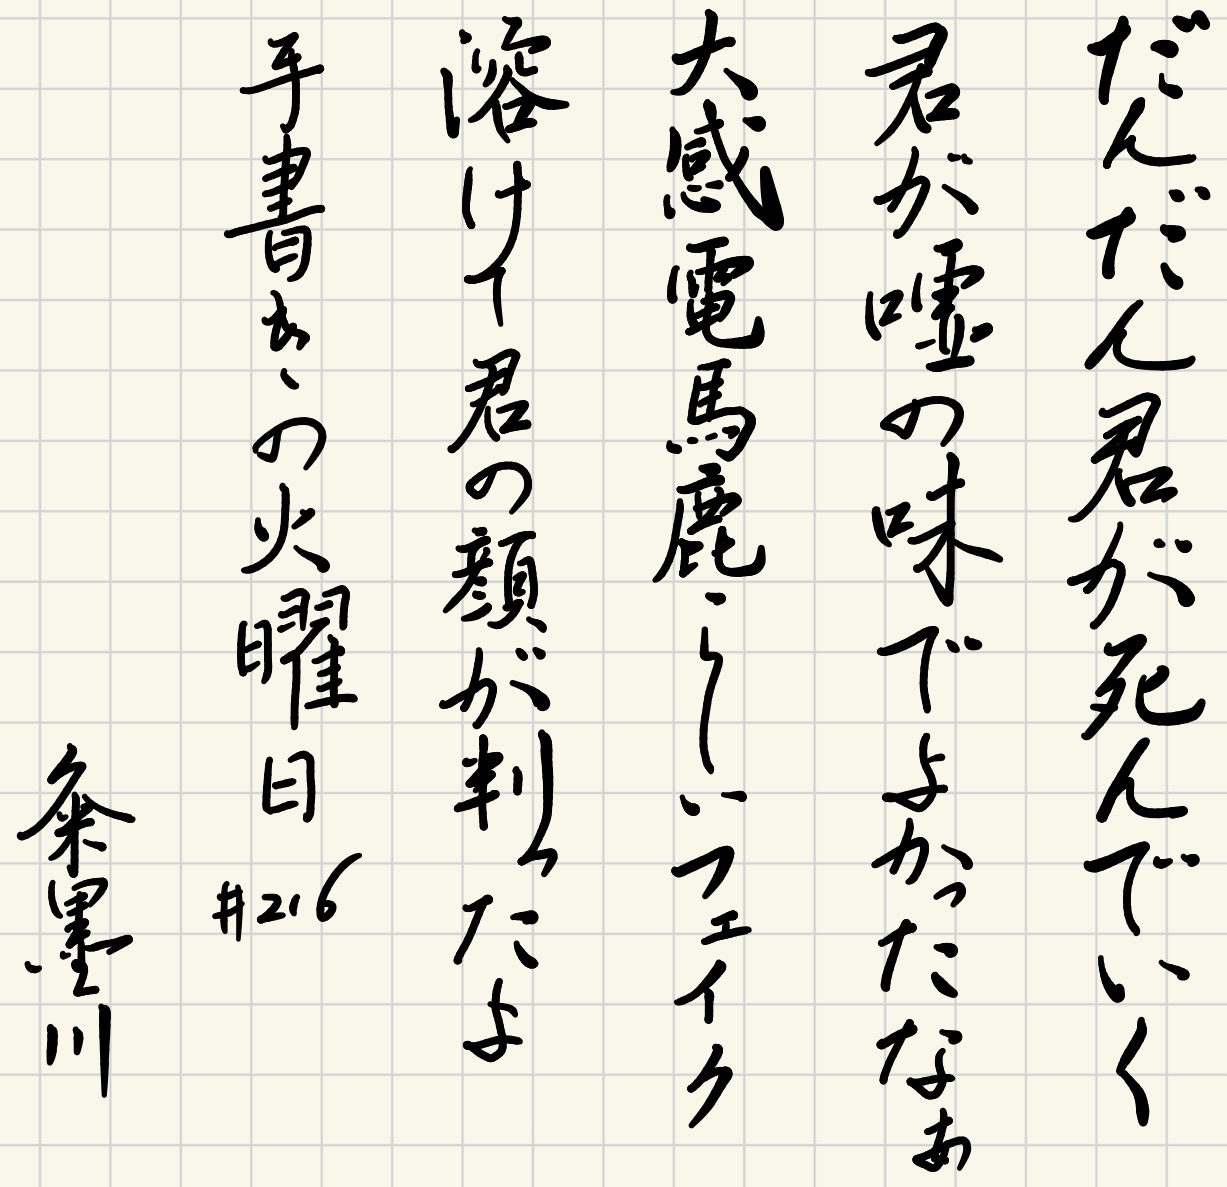 だんだん君が死んでいく
君が嘘の味でよかったなぁ
大感電馬鹿らしいフェイク
溶けて君の顔が判ったよ
手書きの火曜日 #216
粂墨川